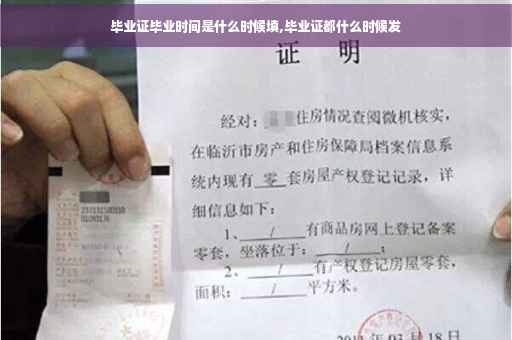 毕业证毕业时间是什么时候填,毕业证都什么时候发
证 明
经对：住房情况查阅微机核实，
在临沂市房产和住房保障局档案信息系
统内现有 零 套房屋产权登记记录，详
细信息如下：
1、 / 有商品房网上登记备案
零套，坐落位于： / ；
2、 / 有产权登记房屋零套，
面积： / 平方米。
03月18日